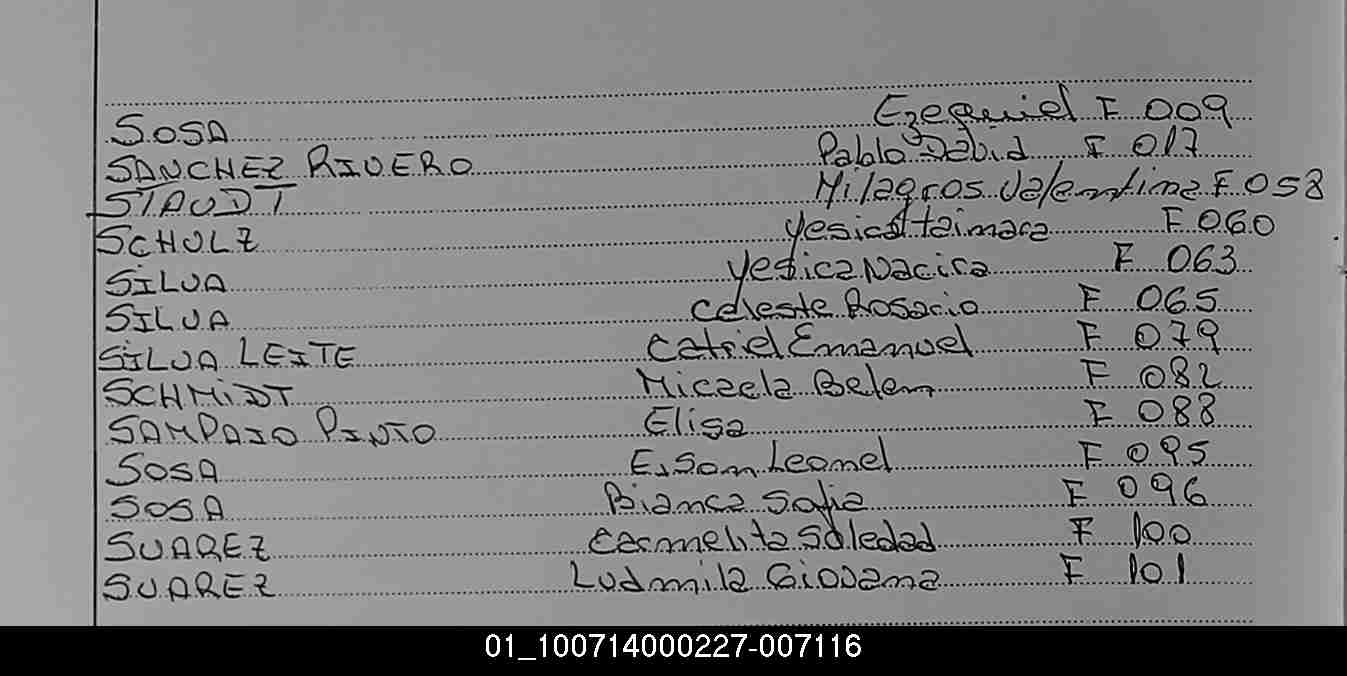 SOSA Ezequiel F 009
SANCHEZ RIVERO Pablo David F 017
STAUDT Milagros Valentina F 058
SCHULZ Yesica Taimara F 060
SILVA Yesica Nacira F 063
SILVA Celeste Rosario F 065
SILVA LEITE Catriel Emanuel F 079
SCHMIDT Micaela Belen F 082
SAMPAIO PINTO Elisa F 088
SOSA Leonel F 095
SOSA Bianca Sofia F 096
SUAREZ Carmelita Soledad F 100
SUAREZ Ludmila Giovana F 101
01_100714000227-007116